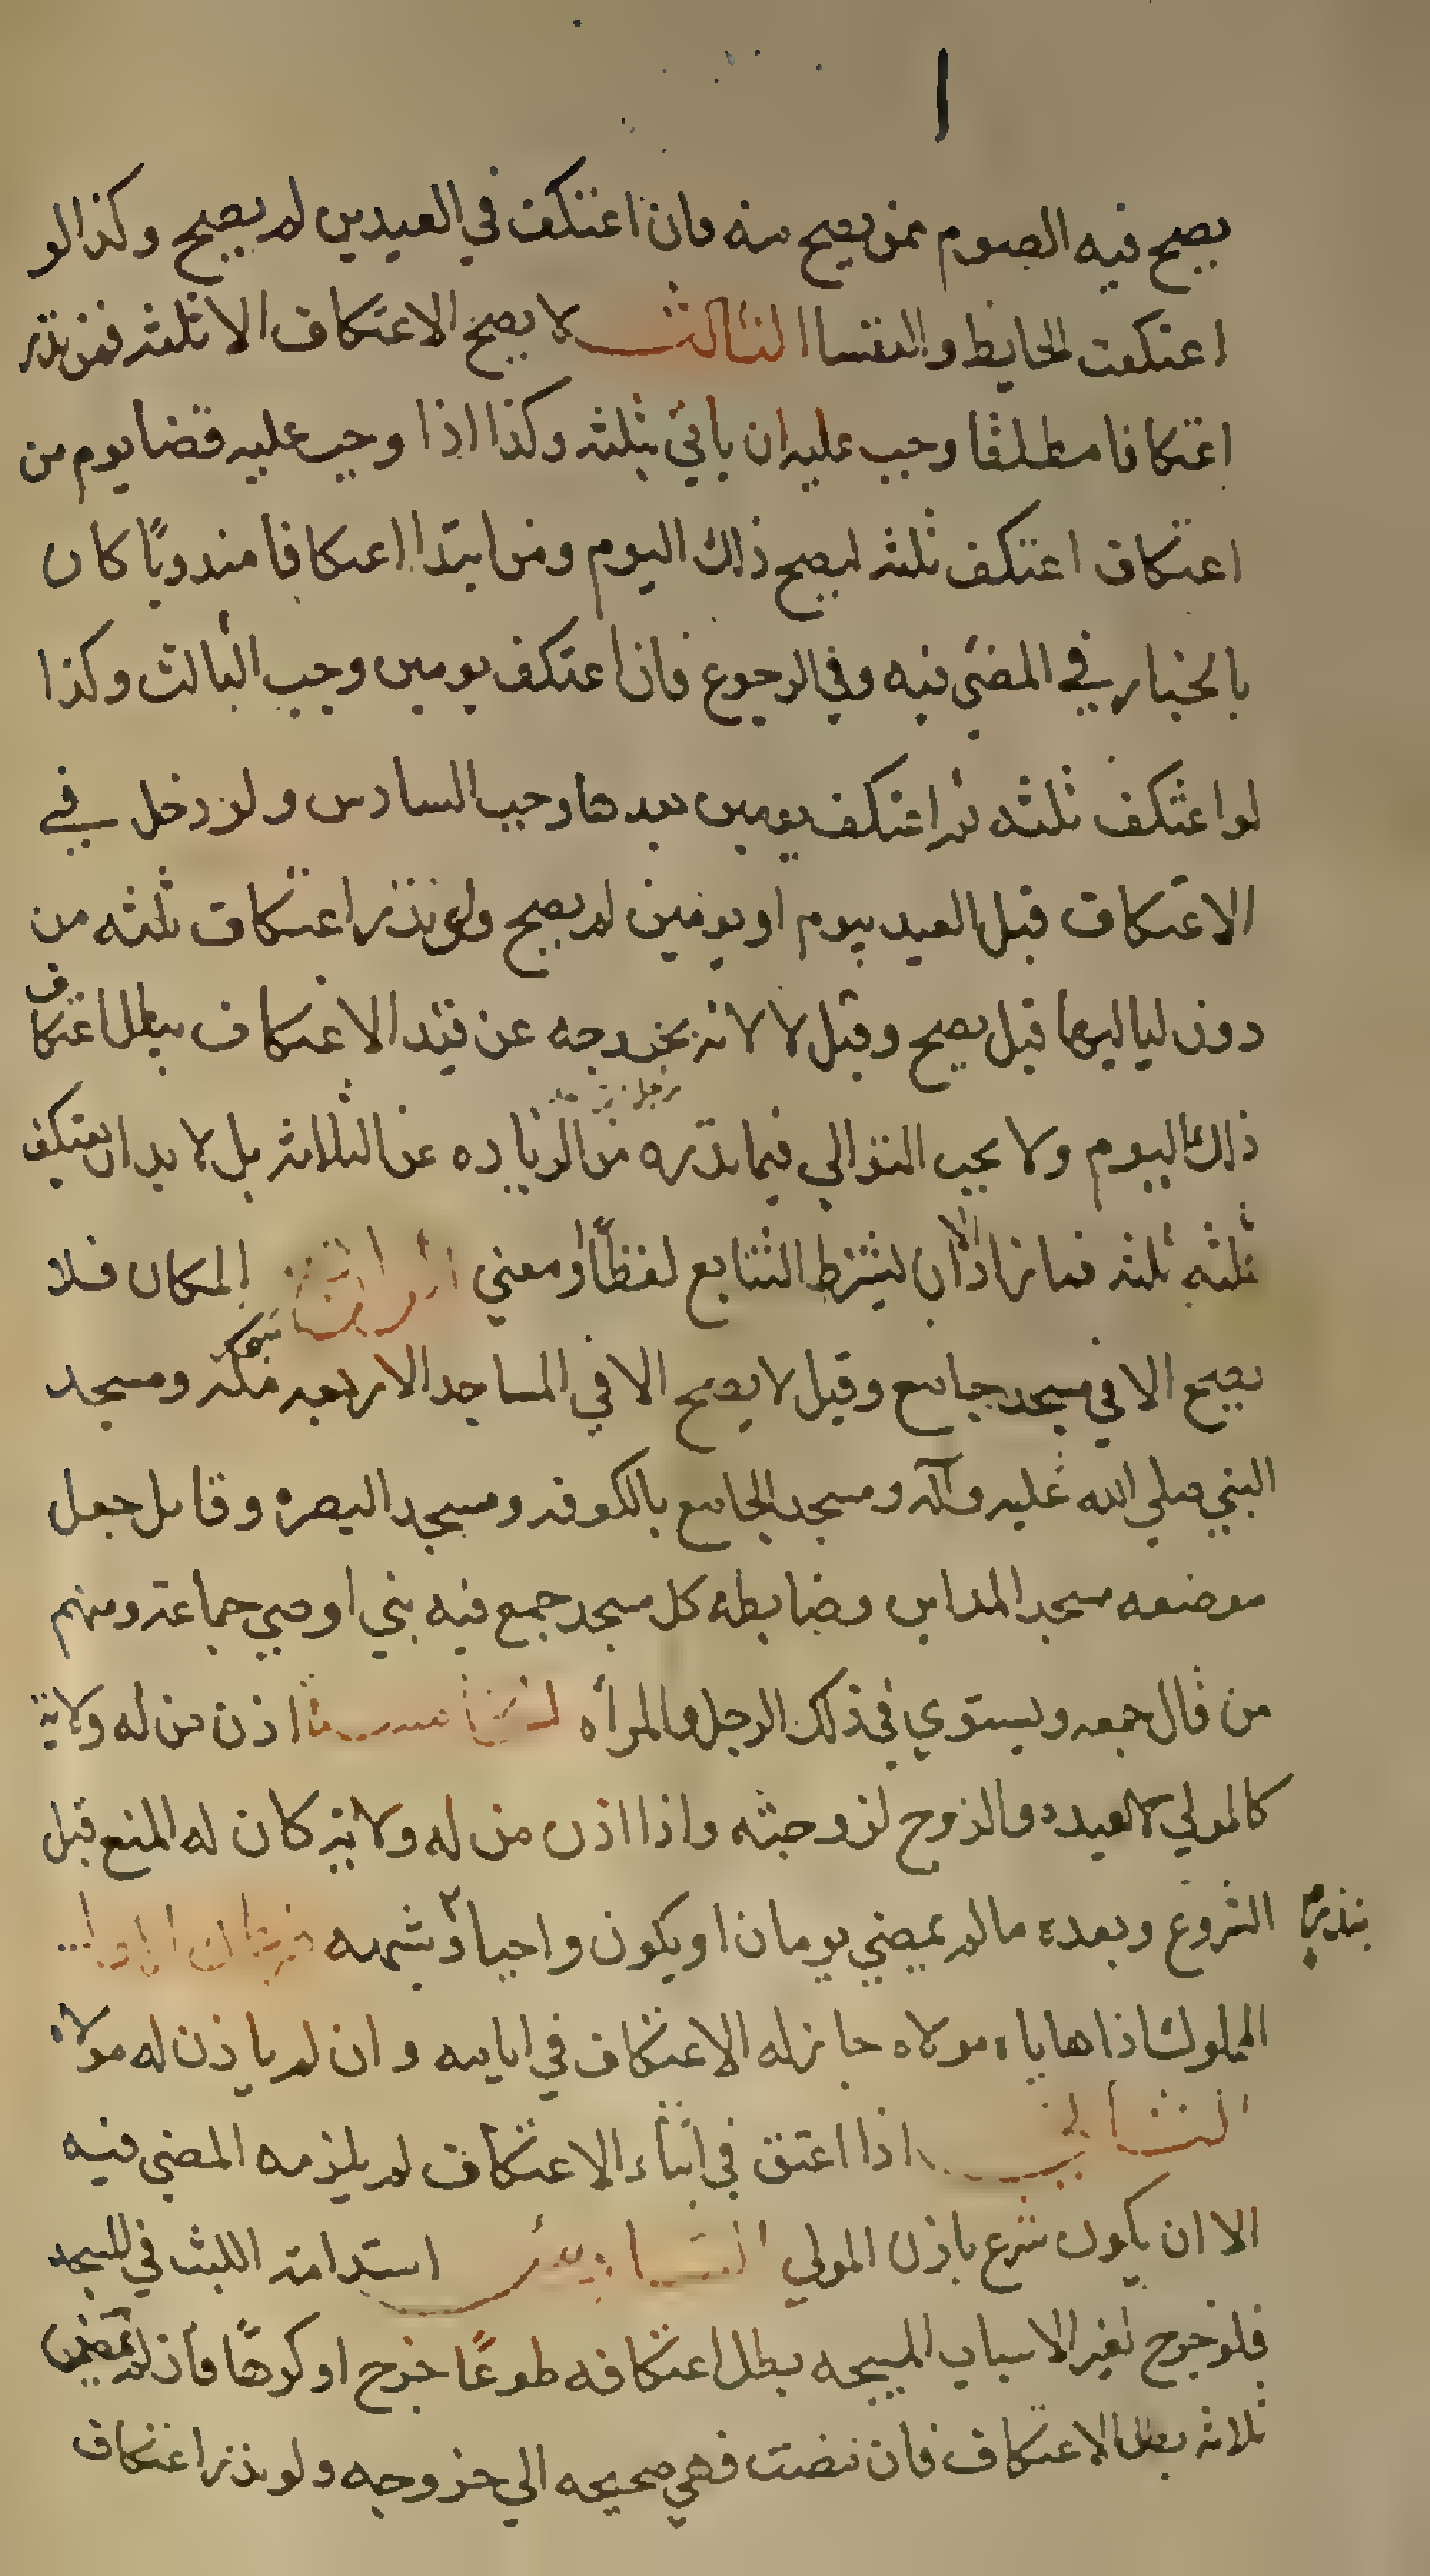 يصح فيه الصوم ممن يصح منه فان اعتكف في العيدين لم يصح وكذا لو
اعتكفت الحايض والنفسا الثالث لا يصح الاعتكاف الا ثلثه فمن نذر
اعتكافا مطلقا وجب عليه ان ياتي بثلثه وكذا اذا وجب عليه قضا يوم من
اعتكاف اعتكف ثلثه ليصح ذلك اليوم ومن ابتدا اعتكافا مندوبًا كان
بالخيار في المضي فيه وفي الرجوع فان اعتكف يومين وجب الثالث وكذا
لو اعتكف ثلثه ثم اعتكف يومين بعدها وجب السادس ولو دخل في
الاعتكاف قبل العيد بيوم او يومين لم يصح ولو نذر اعتكاف ثلثه من
دون لياليها قيل يصح وقيل لا لانه بخروجه عن قيد الاعتكاف يبطل اعتكاف
ذلك اليوم ولا يجب التوالي فيما نذره من الزياده عن الثلاثه بل لا بد ان يعتكف
ثلثه ثلثه فما زاد الا ان يشترط التتابع لفظًا او معني الرابع المكان فلا
يصح الا في مسجد جامع وقيل لا يصح الا في المساجد الاربعه مكه ومسجد
النبي صلي الله عليه وآله ومسجد الجامع بالكوفه ومسجد البصره وقايل جعل
موضعه مسجد المداين وضابطه كل مسجد جمع فيه نبي او وصي جماعة ومنهم
من قال جمعه ويستوي في ذلك الرجل والمرأه الخامس اذن من له ولاية
كالمولي لعبده والزوج لزوجته واذا اذن من له ولايه كان له المنع قبل
الشروع وبعده ما لم يمضي يومان او يكون واجبا بنذر وشبهه فرعان الاول
المملوك اذا هاياه مولاه جاز له الاعتكاف في ايامه وان لم ياذن له مولاه
الثاني اذا اعتق في اثناء الاعتكاف لم يلزمه المضي فيه
الا ان يكون شرع باذن المولي السادس استدامة اللبث في المسجد
فلو خرج لغير الاسباب المبيحه بطل اعتكافه طوعًا خرج او كرهًا فان لم تمض
ثلاثه بطل الاعتكاف فان مضت فهي صحيحه الي خروجه ولو نذر اعتكاف